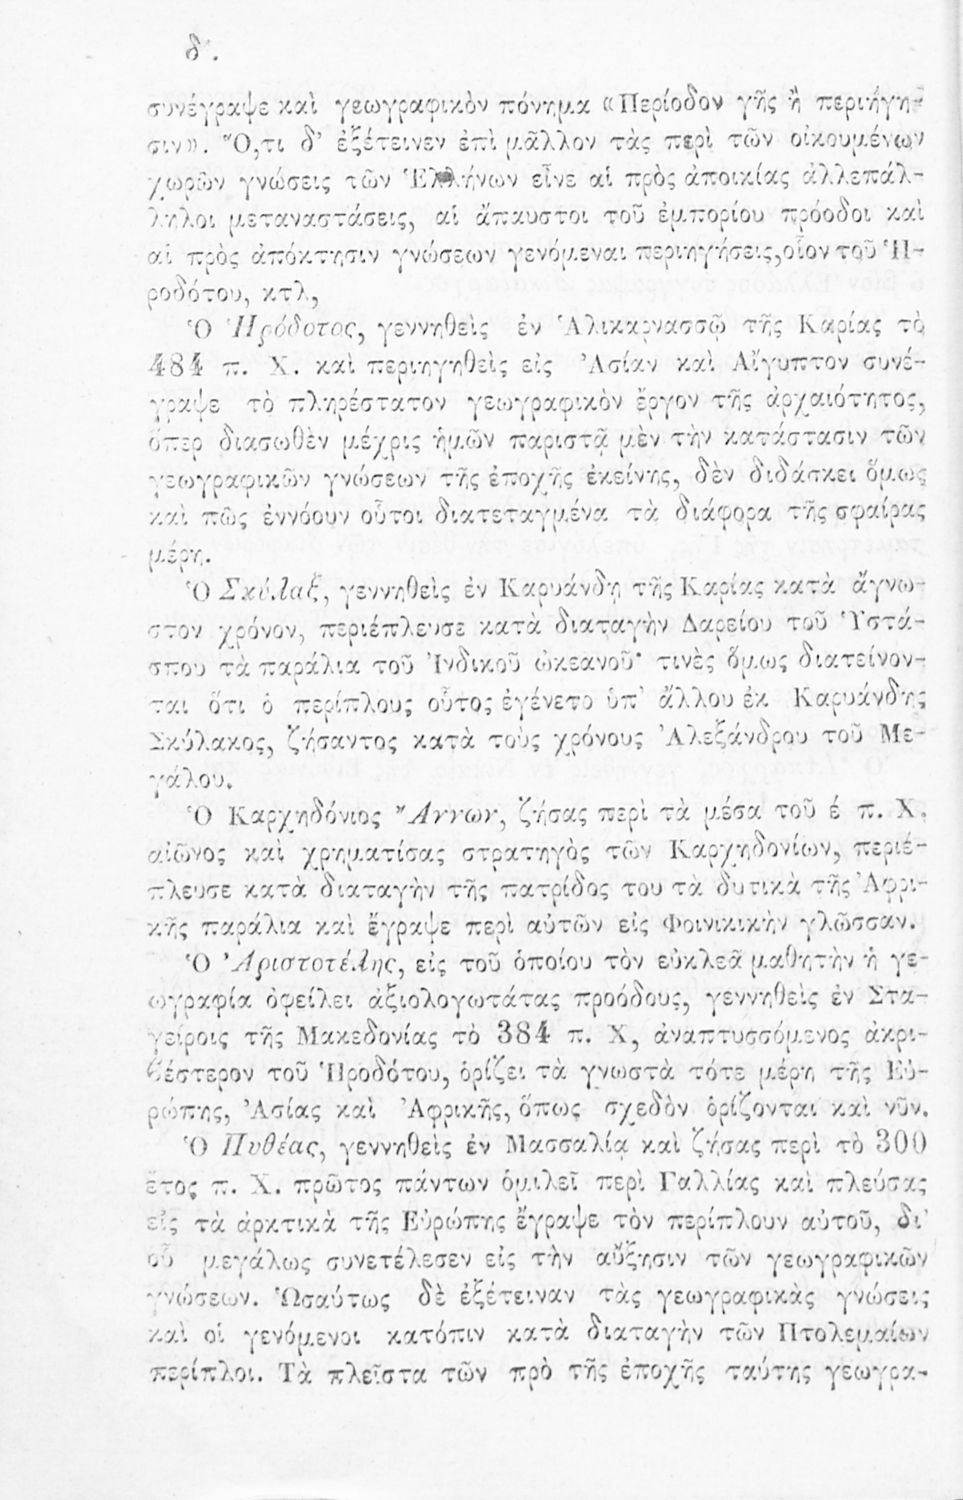 δ΄.
συνέγραψε καὶ γεωγραφικὸν πόνημα «Περίοδον γῆς ἢ περιήγη-
σιν». Ὅ,τι δ’ ἐξέτεινεν ἐπὶ μᾶλλον τὰς περὶ τῶν οἰκουμένων
χωρῶν γνώσεις τῶν Ἑλλήνων εἶνε αἱ πρὸς ἀποικίας ἀλλεπάλ-
ληλοι μεταναστάσεις, αἱ ἄπαυστοι τοῦ ἐμπορίου πρόοδοι καὶ
αἱ πρὸς ἀπόκτησιν γνώσεων γενόμεναι περιηγήσεις,οἷον τοῦ Ἡ-
ροδότου, κτλ,
Ὁ Ἡρόδοτος, γεννηθεὶς ἐν Ἁλικαρνασσῷ τῆς Καρίας τὸ
484 π. Χ. καὶ περιηγηθεὶς εἰς Ἀσίαν καὶ Αἴγυπτον συνέ-
γραψε τὸ πληρέστατον γεωγραφικὸν ἔργον τῆς ἀρχαιότητος,
ὅπερ διασωθὲν μέχρις ἡμῶν παριστᾷ μὲν τὴν κατάστασιν τῶν
γεωγραφικῶν γνώσεων τῆς ἐποχῆς ἐκείνης, δὲν διδάσκει ὅμως
καὶ πῶς ἐννόουν οὗτοι διατεταγμένα τὰ διάφορα τῆς σφαίρας
μέρη.
Ὁ Σκύλαξ, γεννηθεὶς ἐν Καρυάνδῃ τῆς Καρίας κατὰ ἄγνω-
στον χρόνον, περιέπλευσε κατὰ διαταγὴν Δαρείου τοῦ Ὑστά-
σπου τὰ παράλια τοῦ Ἰνδικοῦ ὠκεανοῦ· τινὲς ὅμως διατείνον-
ται ὅτι ὁ περίπλους οὗτος ἐγένετο ὑπ’ ἄλλου ἐκ Καρυάνδης
Σκύλακος, ζήσαντος κατὰ τοὺς χρόνους Ἀλεξάνδρου τοῦ Με-
γάλου.
Ὁ Καρχηδόνιος Ἄννων, ζήσας περὶ τὰ μέσα τοῦ έ π. Χ.
αἰῶνος καὶ χρηματίσας στρατηγὸς τῶν Καρχηδονίων, περιέ-
πλευσε κατὰ διαταγὴν τῆς πατρίδος του τὰ δυτικὰ τῆς Ἀφρι-
κῆς παράλια καὶ ἔγραψε περὶ αὐτῶν εἰς Φοινικικὴν γλῶσσαν.
Ὁ Ἀριστοτέλης, εἰς τοῦ ὁποίου τὸν εὐκλεᾶ μαθητὴν ἡ γε-
ωγραφία ὀφείλει ἀξιολογωτάτας προόδους, γεννηθεὶς ἐν Στα-
γείροις τῆς Μακεδονίας τὸ 384 π. Χ, ἀναπτυσσόμενος ἀκρι-
βέστερον τοῦ Ἡροδότου, ὁρίζει τὰ γνωστὰ τότε μέρη τῆς Εὐ-
ρώπης, Ἀσίας καὶ Ἀφρικῆς, ὅπως σχεδὸν ὁρίζονται καὶ νῦν.
Ὁ Πυθέας, γεννηθεὶς ἐν Μασσαλίᾳ καὶ ζήσας περὶ τὸ 300
ἔτος π. Χ. πρῶτος πάντων ὁμιλεῖ περὶ Γαλλίας καὶ πλεύσας
εἰς τὰ ἀρκτικὰ τῆς Εὐρώπης ἔγραψε τὸν περίπλουν αὐτοῦ, δι’
οὗ μεγάλως συνετέλεσεν εἰς τὴν αὔξησιν τῶν γεωγραφικῶν
γνώσεων. Ὡσαύτως δὲ ἐξέτειναν τὰς γεωγραφικὰς γνώσεις
καὶ οἱ γενόμενοι κατόπιν κατὰ διαταγὴν τῶν Πτολεμαίων
περίπλοι. Τὰ πλεῖστα τῶν πρὸ τῆς ἐποχῆς ταύτης γεωγρα-